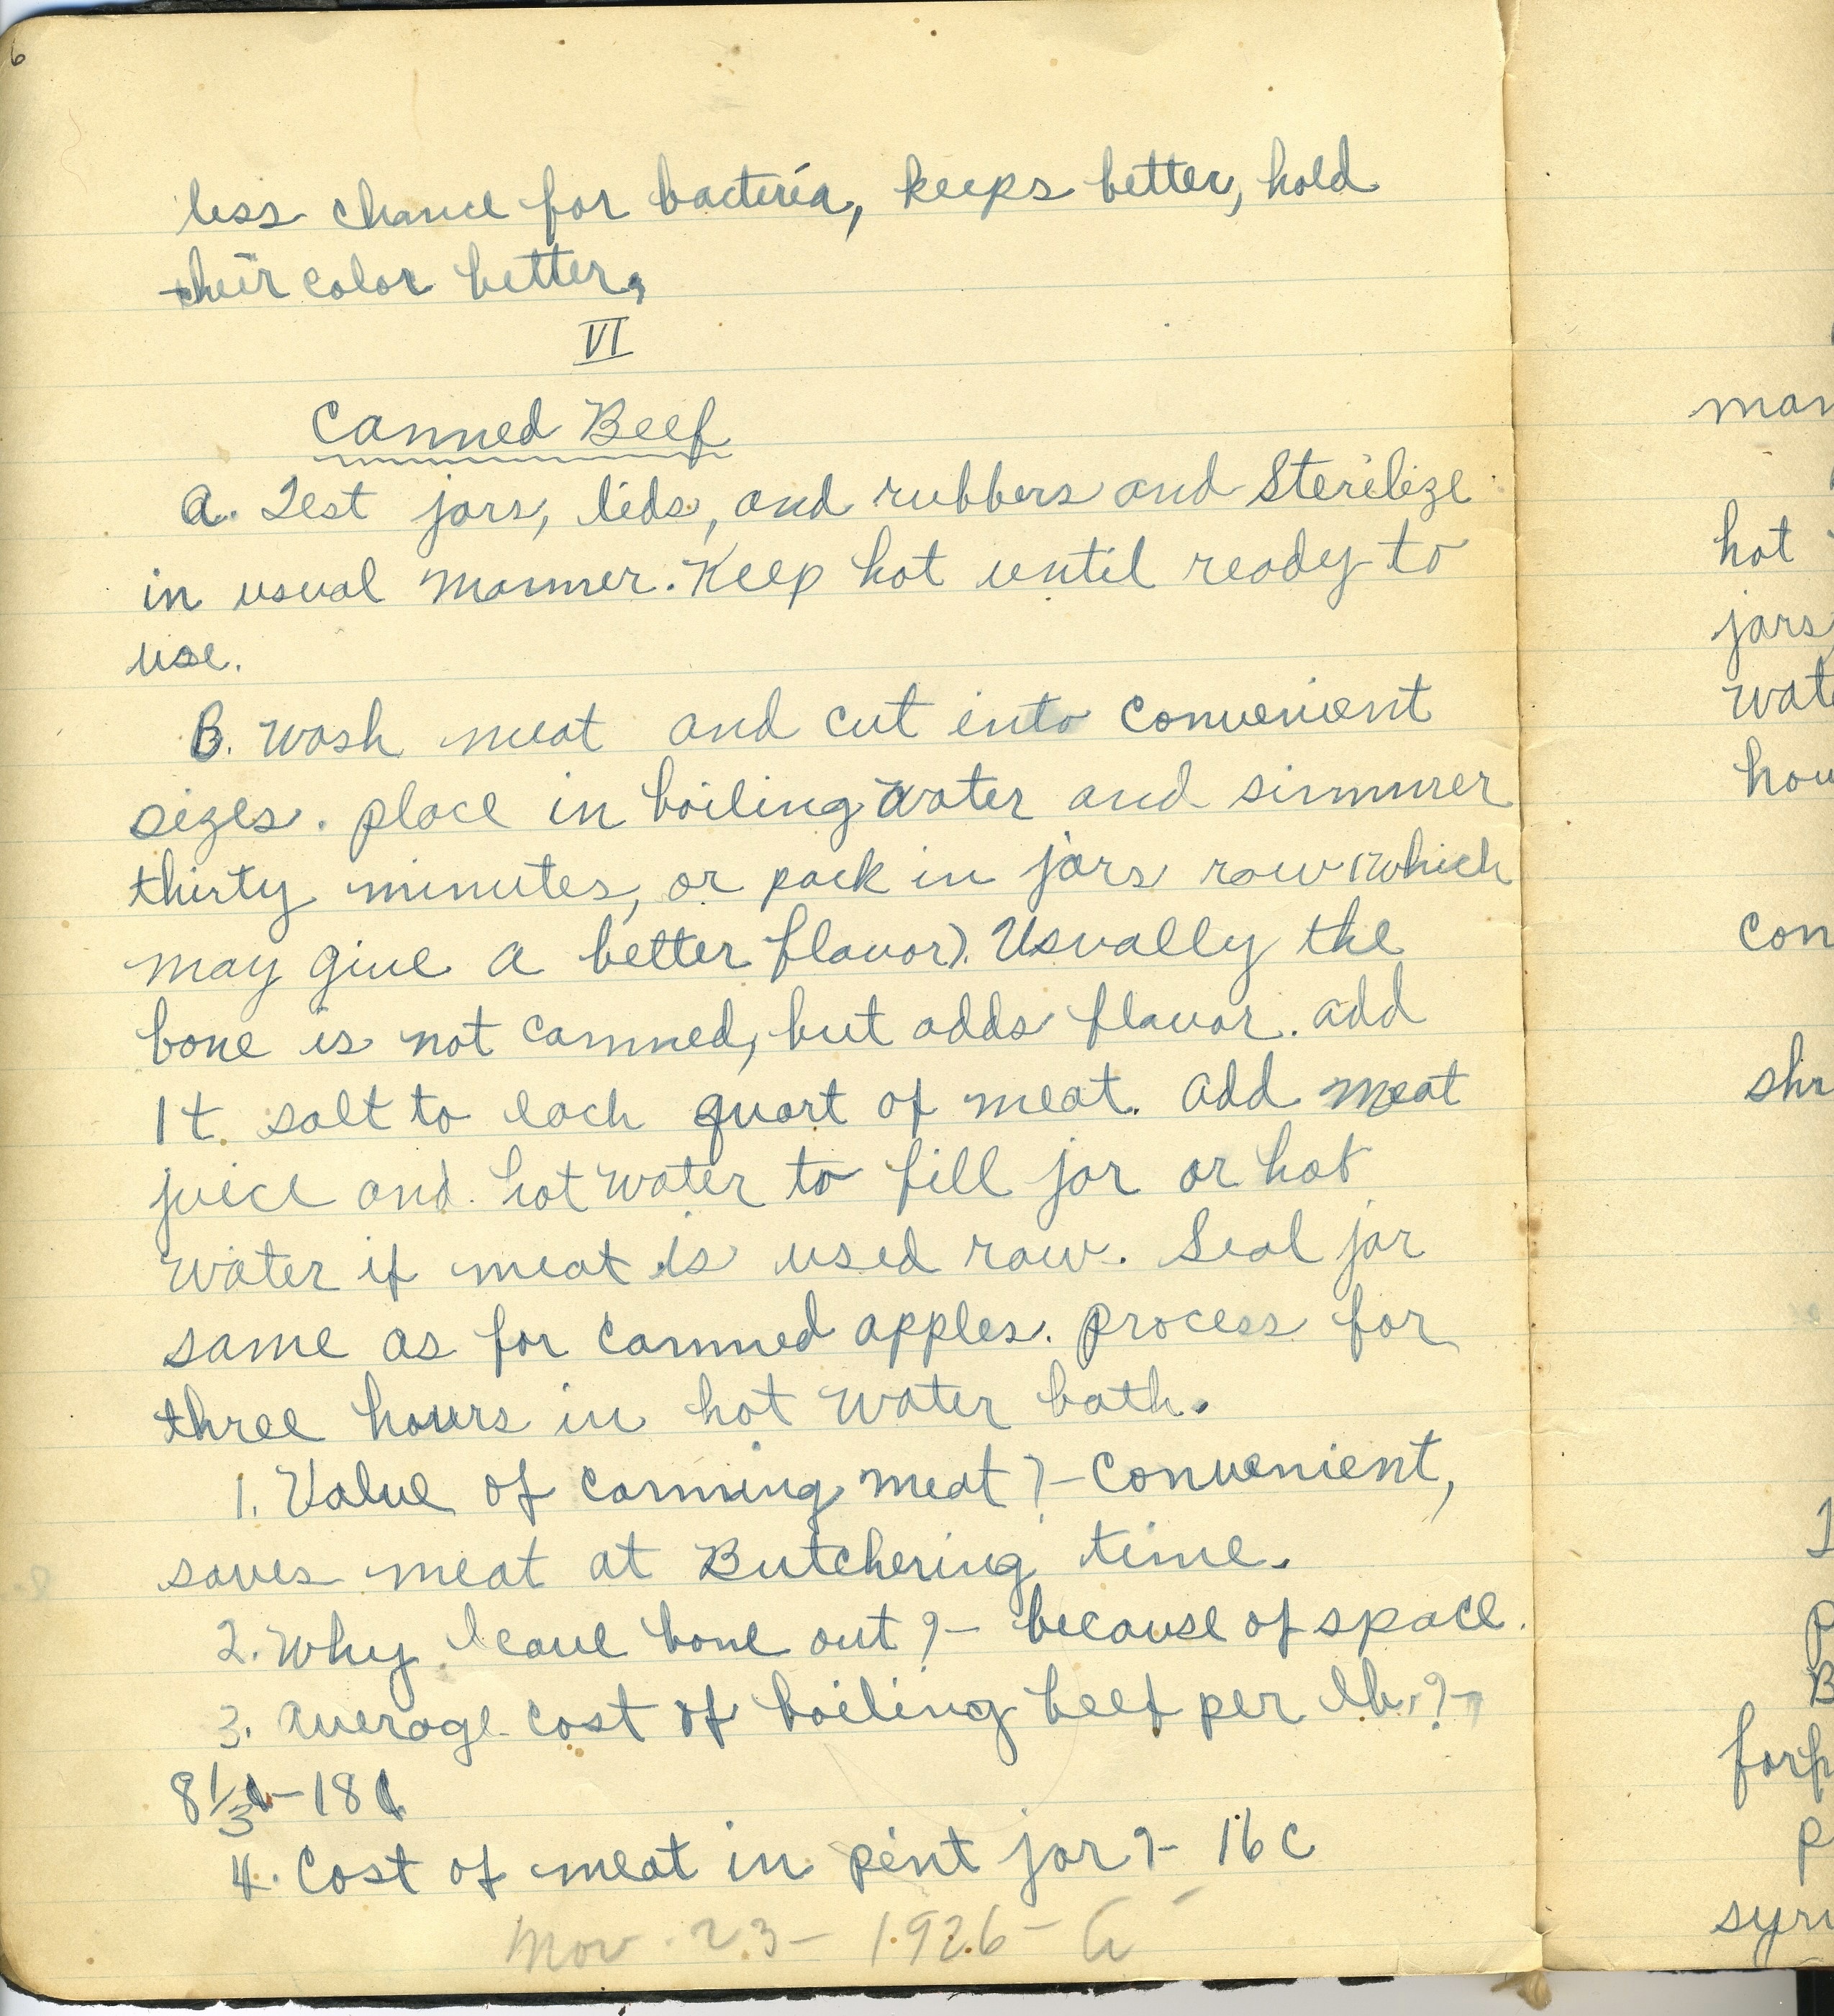 6
less chance for bacteria, keeps better, hold
their color better,
VI
Canned Beef
A. Test jars, lids, and rubbers and Sterilize
in usual manner. Keep hot until ready to
use.
B. Wash meat and cut into convenient
sizes. place in boiling water and simmer
thirty minutes, or pack in jars raw (which
may give a better flavor). Usually the
bone is not canned, but adds flavor. add
1 t. salt to each quart of meat. add meat
juice and hot water to fill jar or hot
water if meat is used raw. Seal jar
same as for canned apples. process for
three hours in hot water bath.
1. Value of canning meat?- Convenient,
saves meat at Butchering time.
2. Why leave bone out?- because of space.
3. Average cost of boiling beef per lb.?-
8 1/3¢-18¢
4. Cost of meat in pint jar?- 16c
Nov. 23- 1926-
man
hot
jars
wat
hou
con
shr
syru